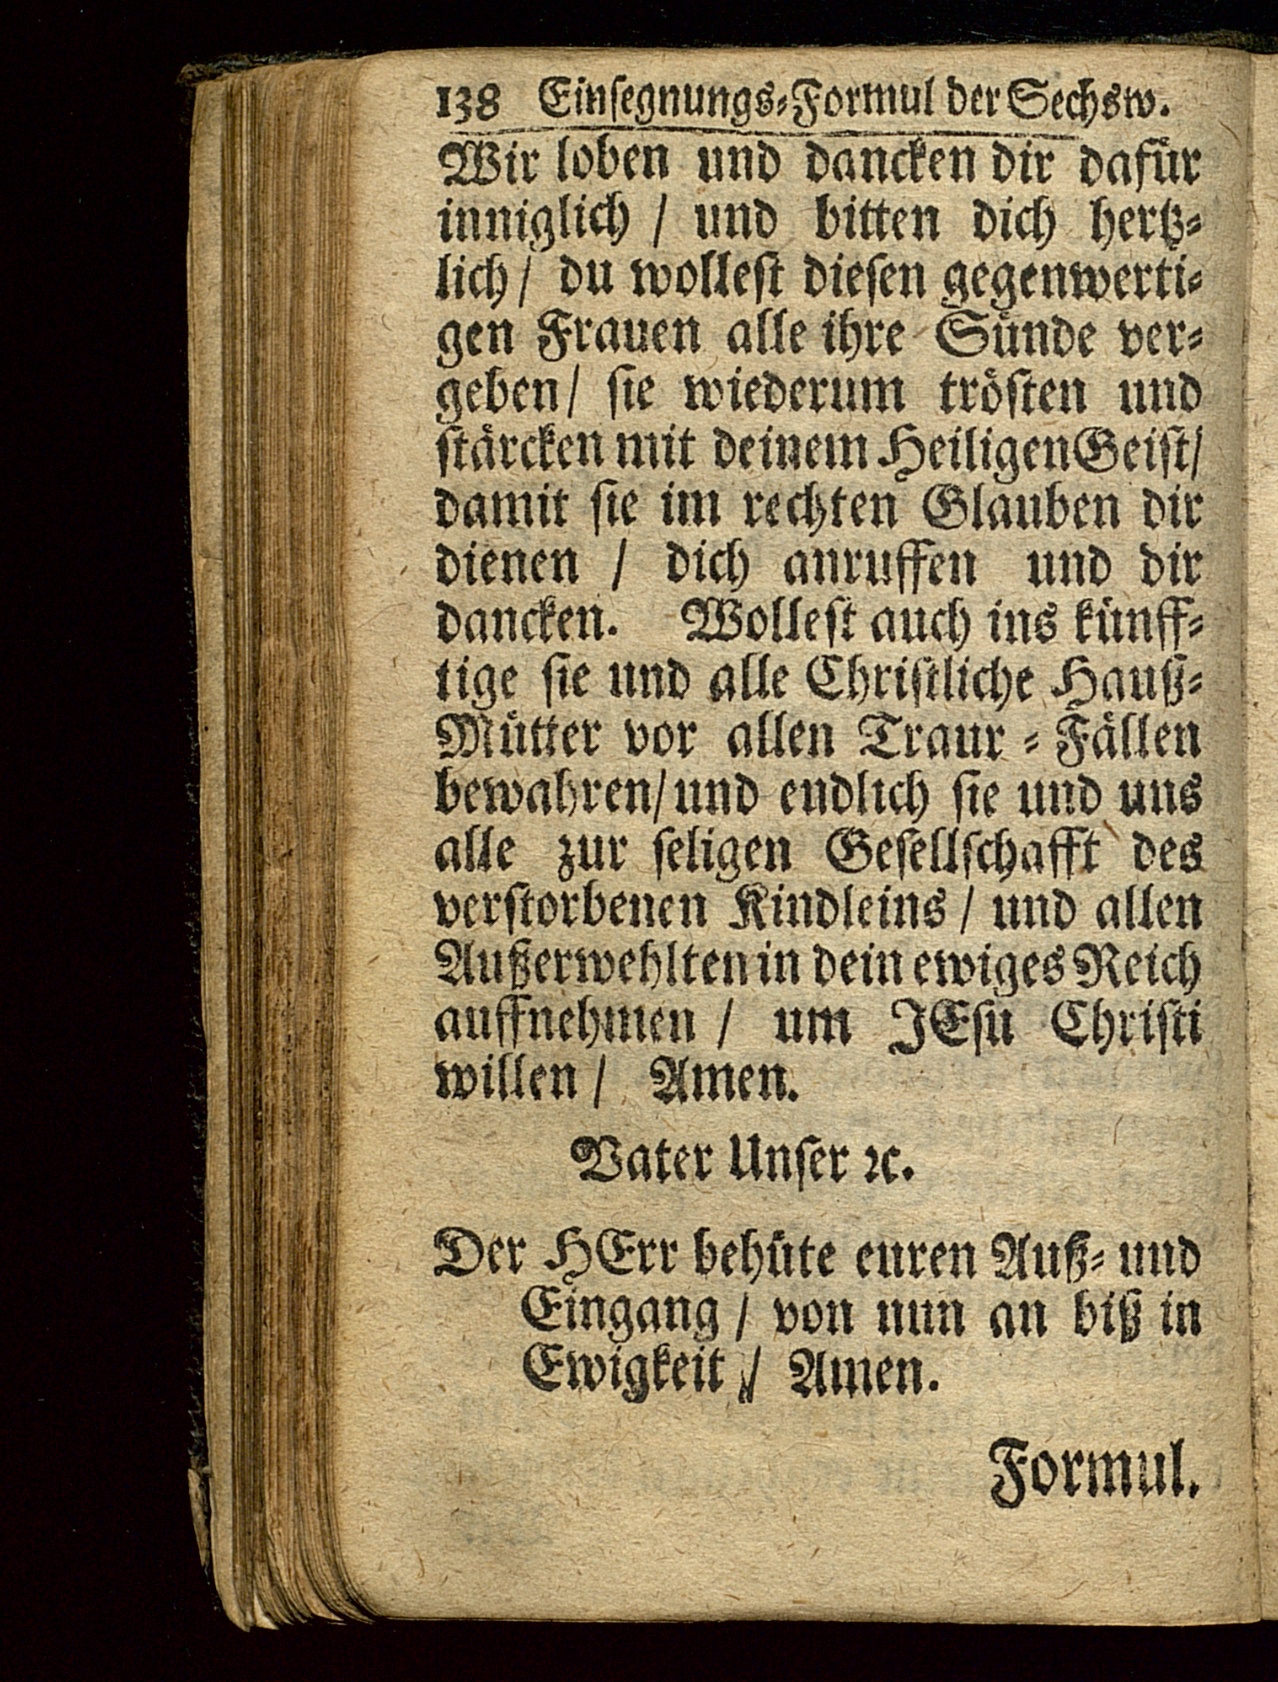 138 Einſegnungs⸗Formul der Sechsw.
Wir loben und dancken dir dafür
inniglich / und bitten dich hertz⸗
lich / du wolleſt dieſen gegenwerti⸗
gen Frauen alle ihre Sünde ver⸗
geben / ſie wiederum tröſten und
ſtärcken mit deinem Heiligen Geiſt /
damit ſie im rechten Glauben dir
dienen / dich anruffen und dir
dancken. Wolleſt auch ins künff⸗
tige ſie und alle Chriſtliche Hauß⸗
Mütter vor allen Traur⸗Fällen
bewahren / und endlich ſie und uns
alle zur ſeligen Geſellſchafft des
verſtorbenen Kindleins / und allen
Außerwehlten in dein ewiges Reich
auffnehmen / um JEſu Chriſti
willen / Amen.
Vater Unſer ꝛc.
Der HErr behüte euren Auß⸗ und
Eingang / von nun an biß in
Ewigkeit / Amen.
Formul.